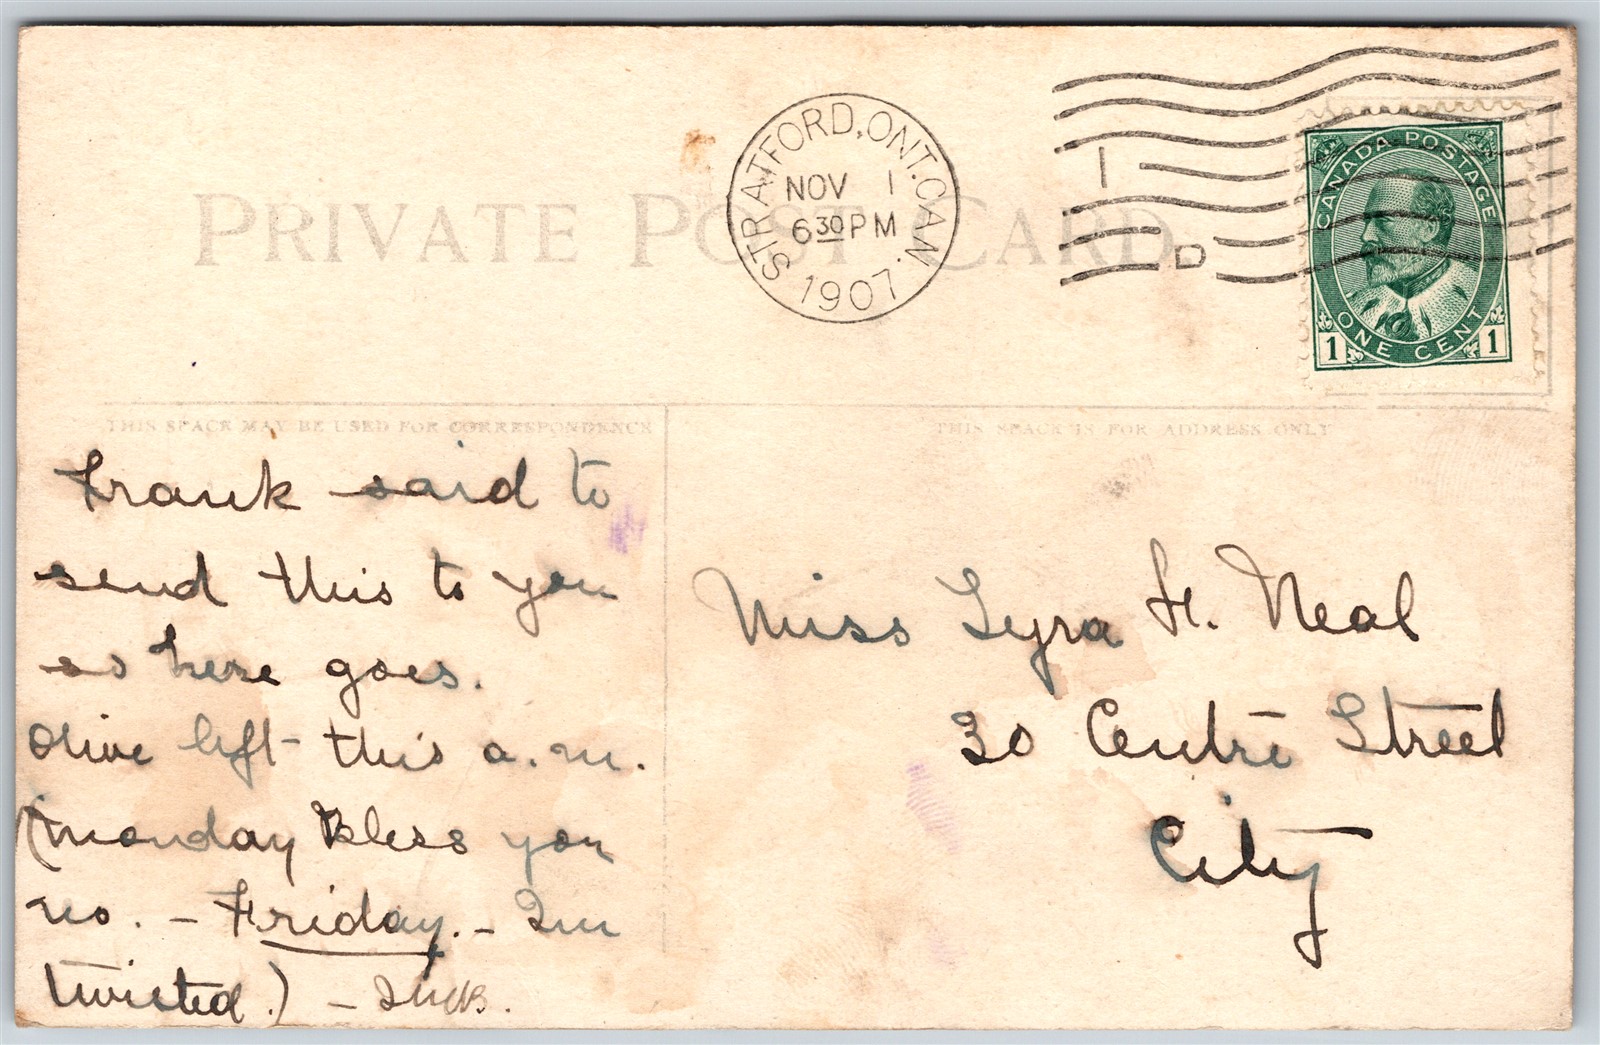 PRIVATE POST CARD
STRATFORD, ONT. CAN.
NOV 1
6 30 PM
1907
1
D
CANADA POSTAGE
ONE CENT
1 1
THIS SPACE MAY BE USED FOR CORRESPONDENCE
THIS SPACE IS FOR ADDRESS ONLY
Frank said to
send this to you
so here goes.
Olive left this a.m.
(monday Bless you
no. – Friday. – Im
twisted.) –
Miss Lyra H. Neal
30 Centre Street
City